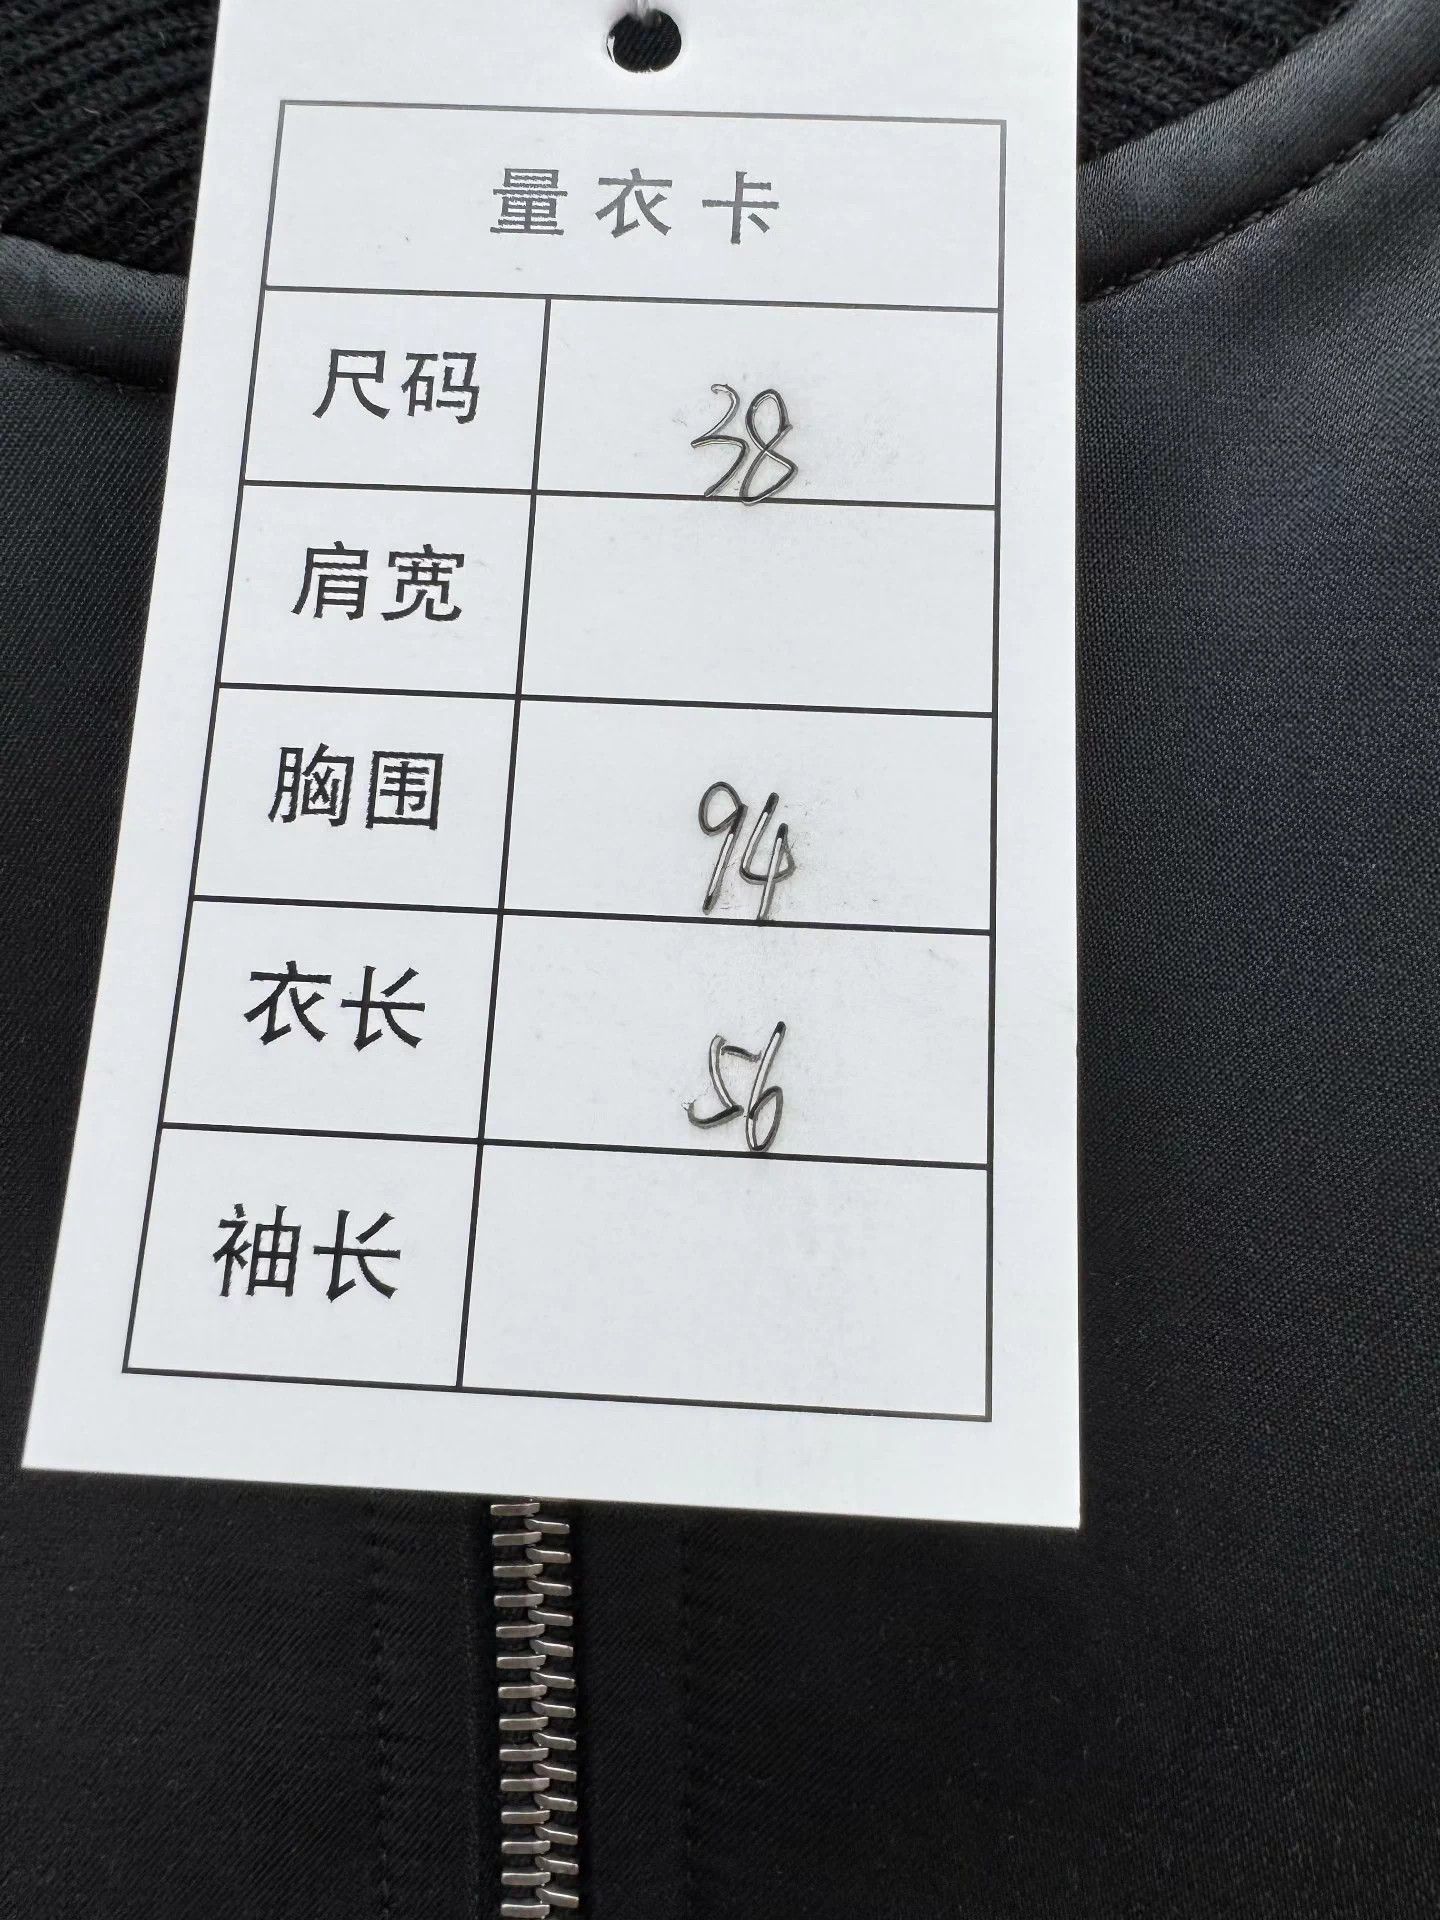 量衣卡
尺码 38
肩宽
胸围 94
衣长 56
袖长